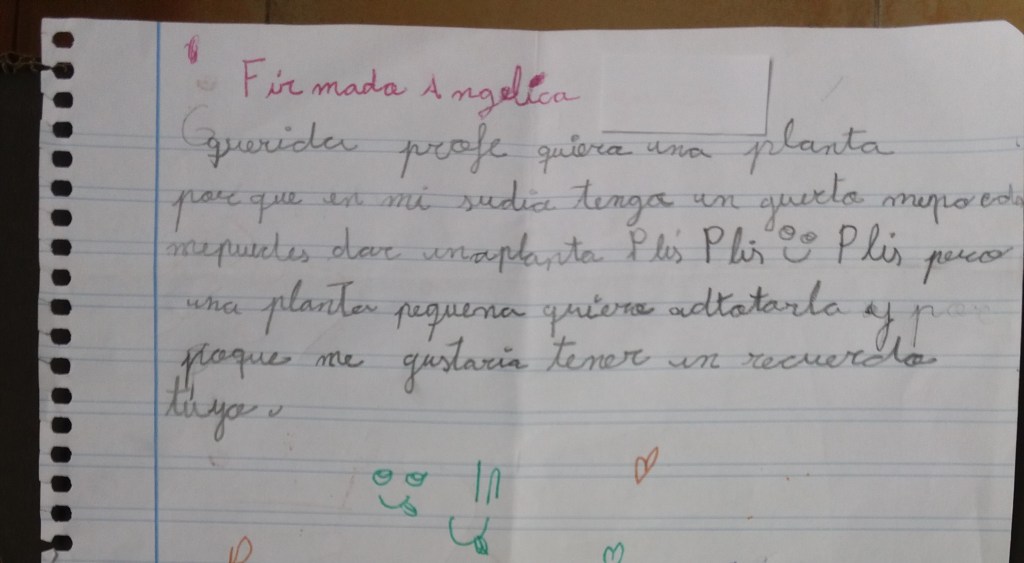 Firmada Angelica
Querida profe quiera una planta
porque en mi sudia tenga un querta mepo
mepuedes dar unaplanta Plis Plis Plis pero
una planta pequena quiero adtotarla y
poque me gustaria tener un recuerdo
tuyo.